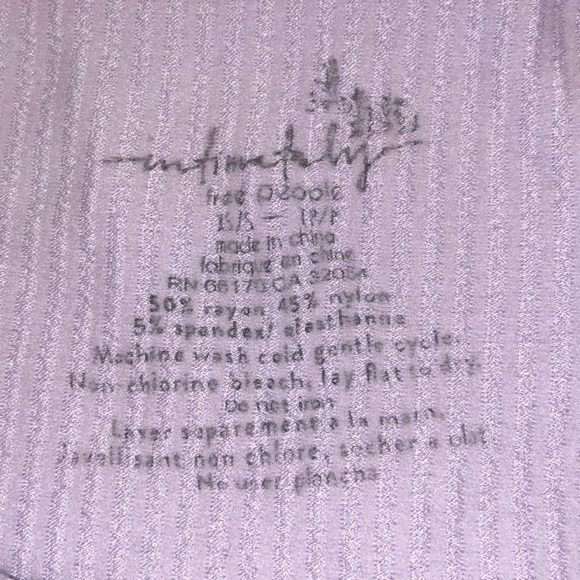 intimately
free people
XS/S – TP/P
made in china
fabriqué en chine
RN 66170 CA
50% rayon 45% nylon
5% spandex/ elasthanne
Machine wash cold gentle cycle.
Non-chlorine bleach. lay flat to dry.
Do not iron
Laver separement a la main.
Javellisant non chlore, secher a plat
No user plancha